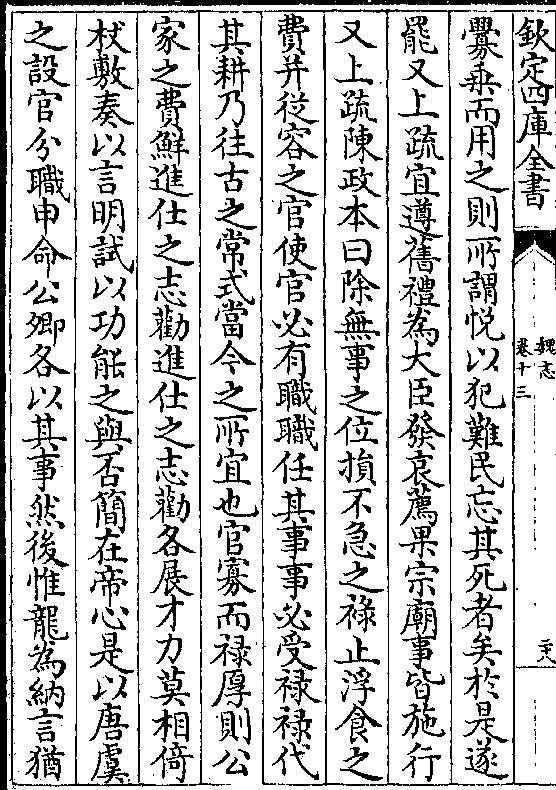 欽定四庫全書
魏志
卷十三
二十八
釁乗而用之則所謂悦以犯難民忘其死者矣於是遂
罷又上疏宜遵舊禮為大臣發哀薦果宗廟事皆施行
又上疏陳政本曰除無事之位損不急之禄止浮食之
費并從容之官使官必有職職任其事事必受禄禄代
其耕乃往古之常式當今之所宜也官寡而禄厚則公
家之費鮮進仕之志勸進仕之志勸各展才力莫相倚
杖敷奏以言明試以功能之與否簡在帝心是以唐虞
之設官分職申命公卿各以其事然後惟龍為納言猶